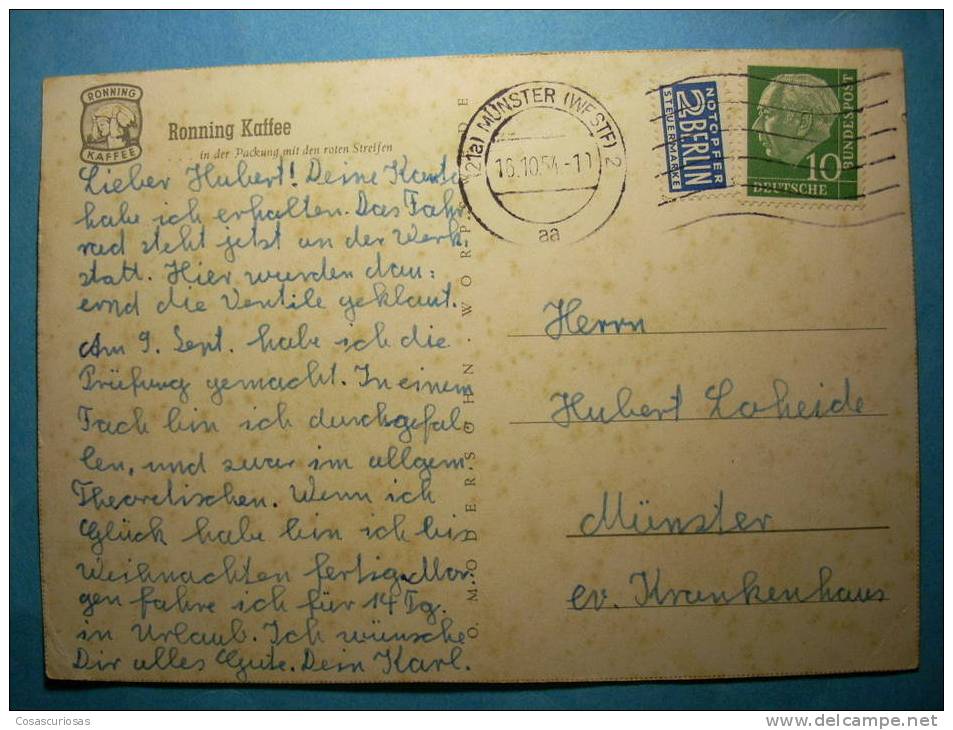 RONNING
KAFFEE
Ronning Kaffee
in der Packung mit den roten Streifen
Lieber Hubert! Deine Karte
habe ich erhalten. Das Fahr-
rad steht jetzt an der Werk-
statt. Hier wurden dau=
ernd die Ventile geklaut.
Am 9. Sept. habe ich die
Prüfung gemacht. In einem
Fach bin ich durchgefal
len, und zwar im allgem.
Theoretischen. Wenn ich
Glück habe bin ich bis
Weihnachten fertig. Mor
gen fahre ich für 14 Tg.
in Urlaub. Ich wünsche
Dir alles Gute. Dein Karl.
O. MODERSOHN · WORPSWEDE
(21a) MÜNSTER (WESTF) 2
16.10.54-11
aa
NOTOPFER
2 BERLIN
STEUERMARKE
10
DEUTSCHE
BUNDESPOST
Herrn
Hubert Loheide
Münster
ev. Krankenhaus
Cosascuriosas
www.delcampe.net